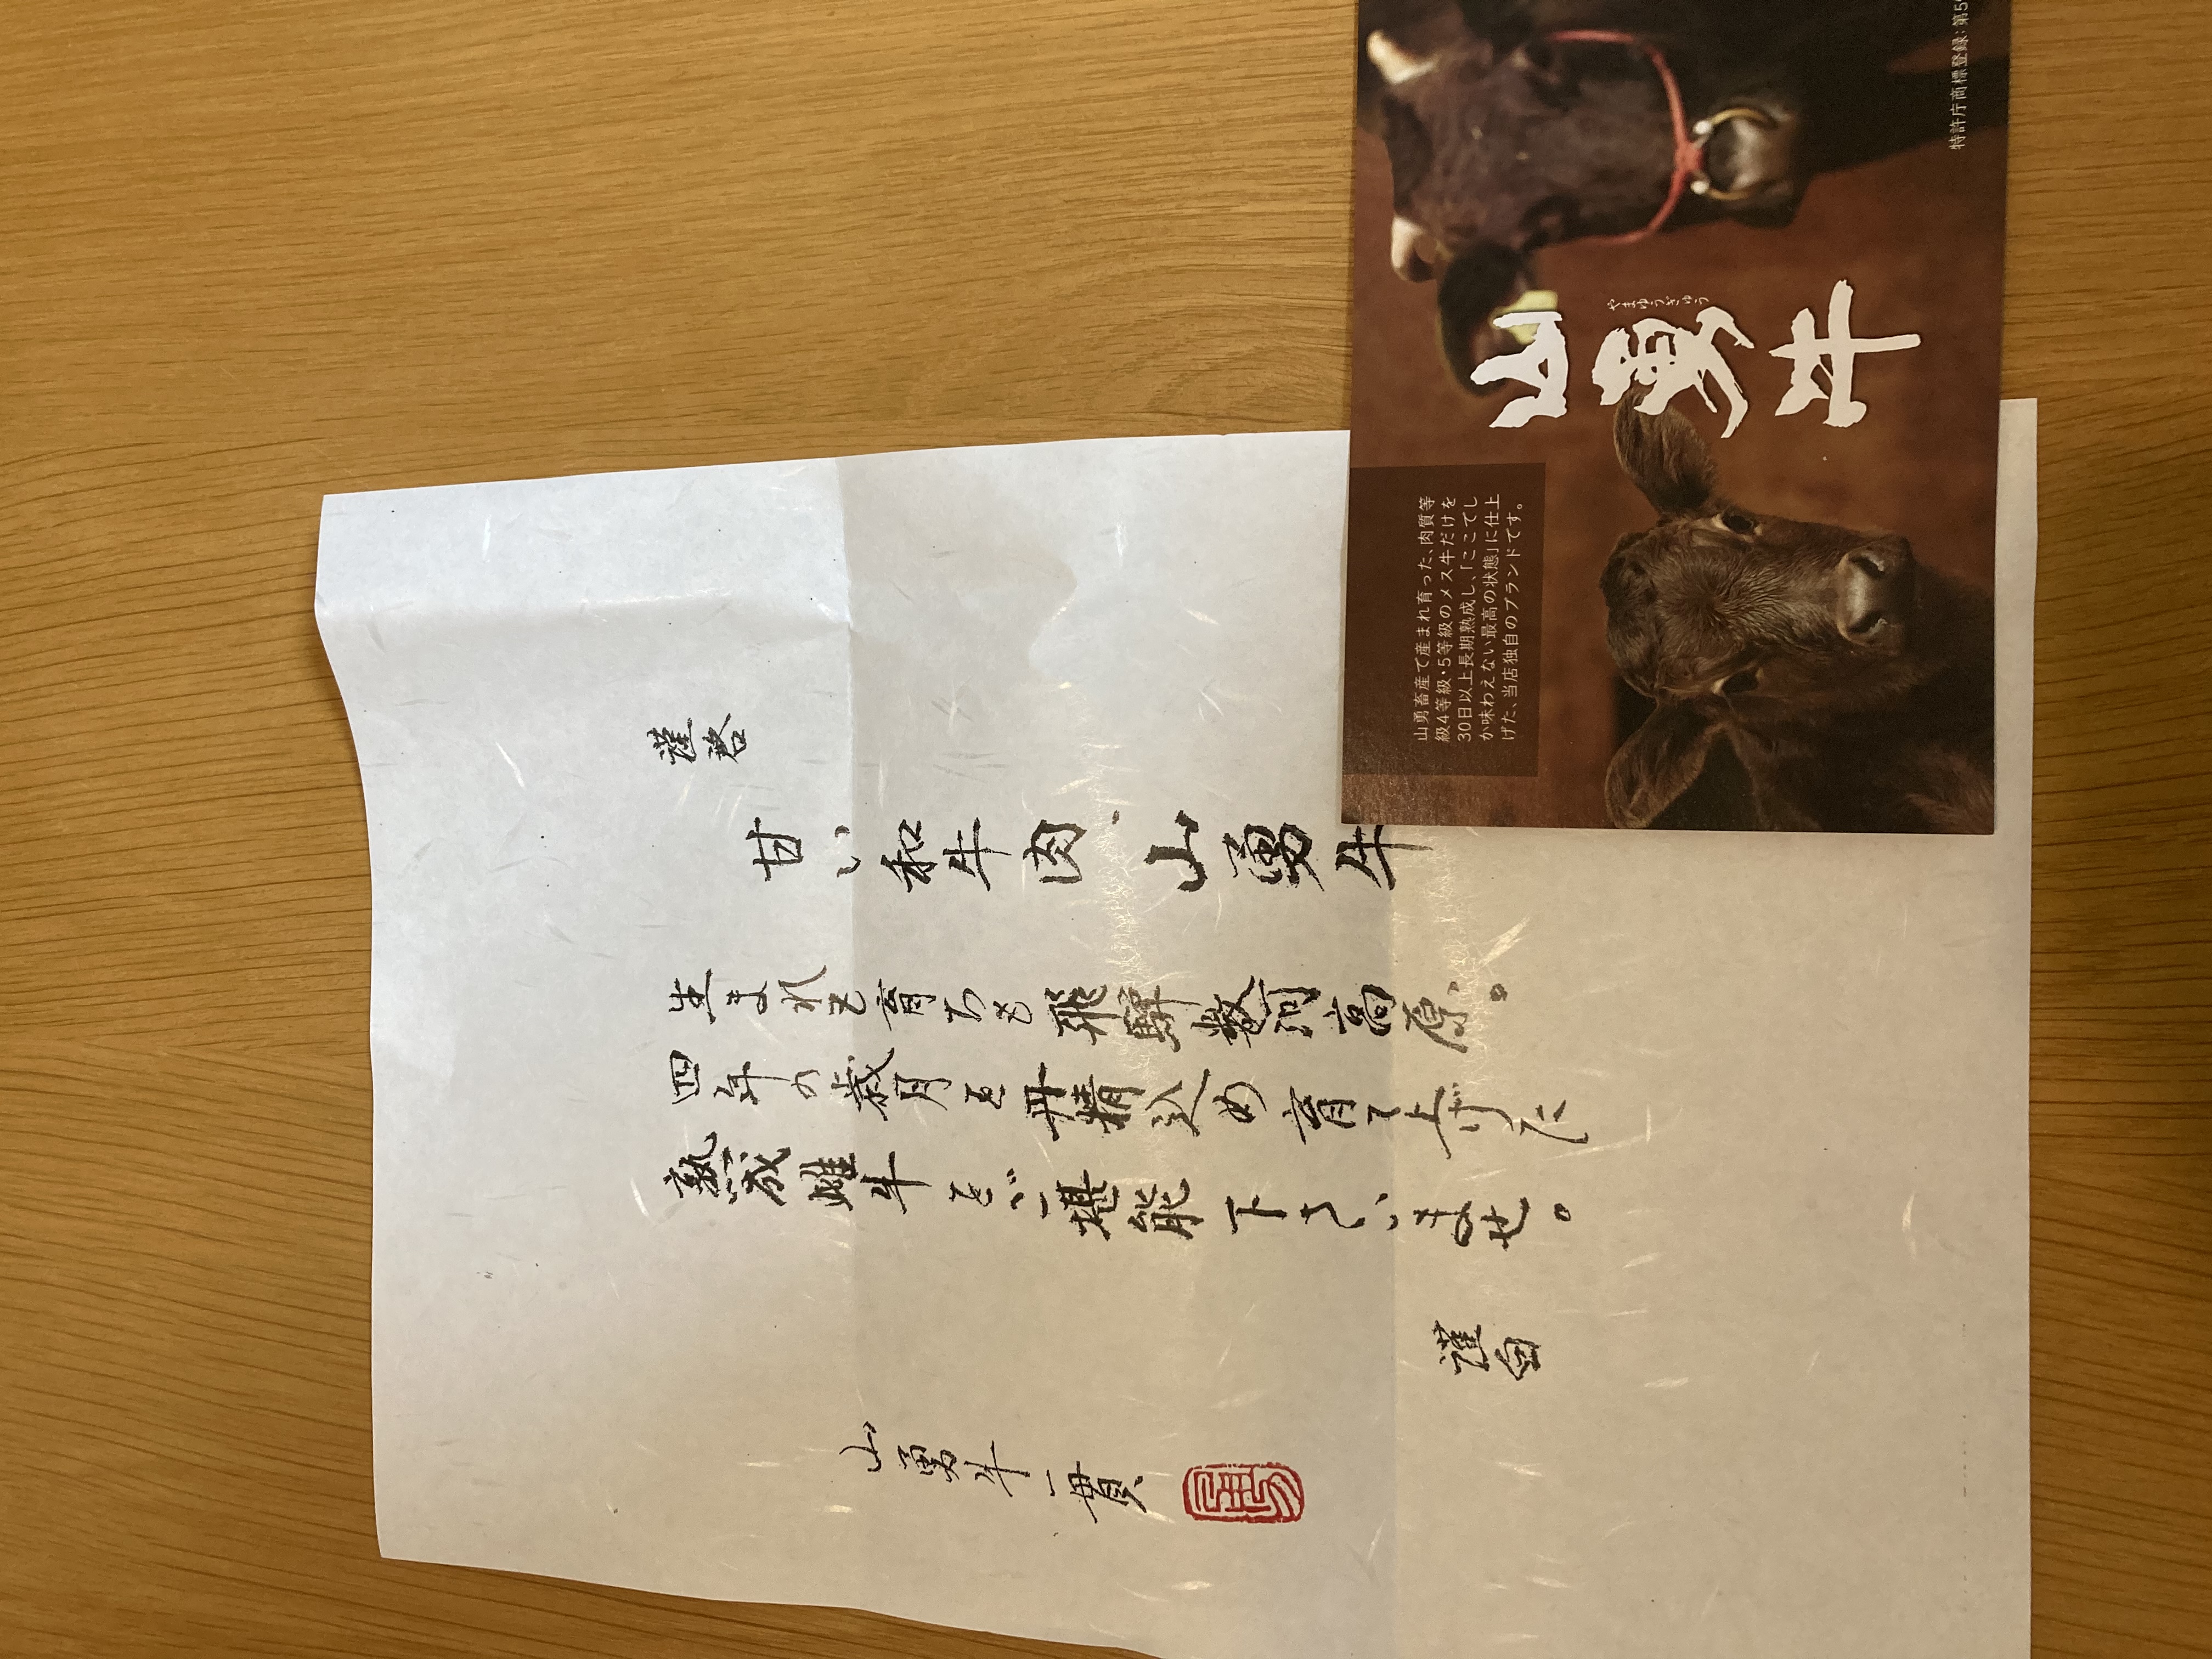 謹啓
甘い和牛肉、山勇牛
生まれも育ちも飛騨数河高原。
四年の歳月を丹精込め育て上げた
熟成雌牛をご堪能下さいませ。
謹白
山勇牛一貫
山勇牛
やまゆうぎゅう
山勇畜産で産まれ育った、肉質等
級4等級・5等級のメス牛だけを
30日以上長期熟成し、「ここでし
か味わえない最高の状態」に仕上
げた、当店独自のブランドです。
特許庁商標登録:第5